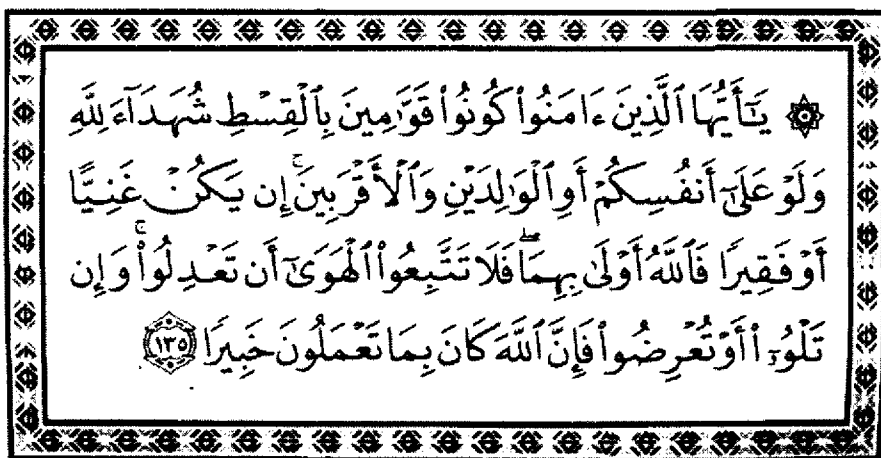 ۞ يَٰٓأَيُّهَا ٱلَّذِينَ ءَامَنُوا۟ كُونُوا۟ قَوَّٰمِينَ بِٱلْقِسْطِ شُهَدَآءَ لِلَّهِ
وَلَوْ عَلَىٰٓ أَنفُسِكُمْ أَوِ ٱلْوَٰلِدَيْنِ وَٱلْأَقْرَبِينَ ۚ إِن يَكُنْ غَنِيًّا
أَوْ فَقِيرًا فَٱللَّهُ أَوْلَىٰ بِهِمَا ۖ فَلَا تَتَّبِعُوا۟ ٱلْهَوَىٰٓ أَن تَعْدِلُوا۟ ۚ وَإِن
تَلْوُۥٓا۟ أَوْ تُعْرِضُوا۟ فَإِنَّ ٱللَّهَ كَانَ بِمَا تَعْمَلُونَ خَبِيرًا ١٣٥